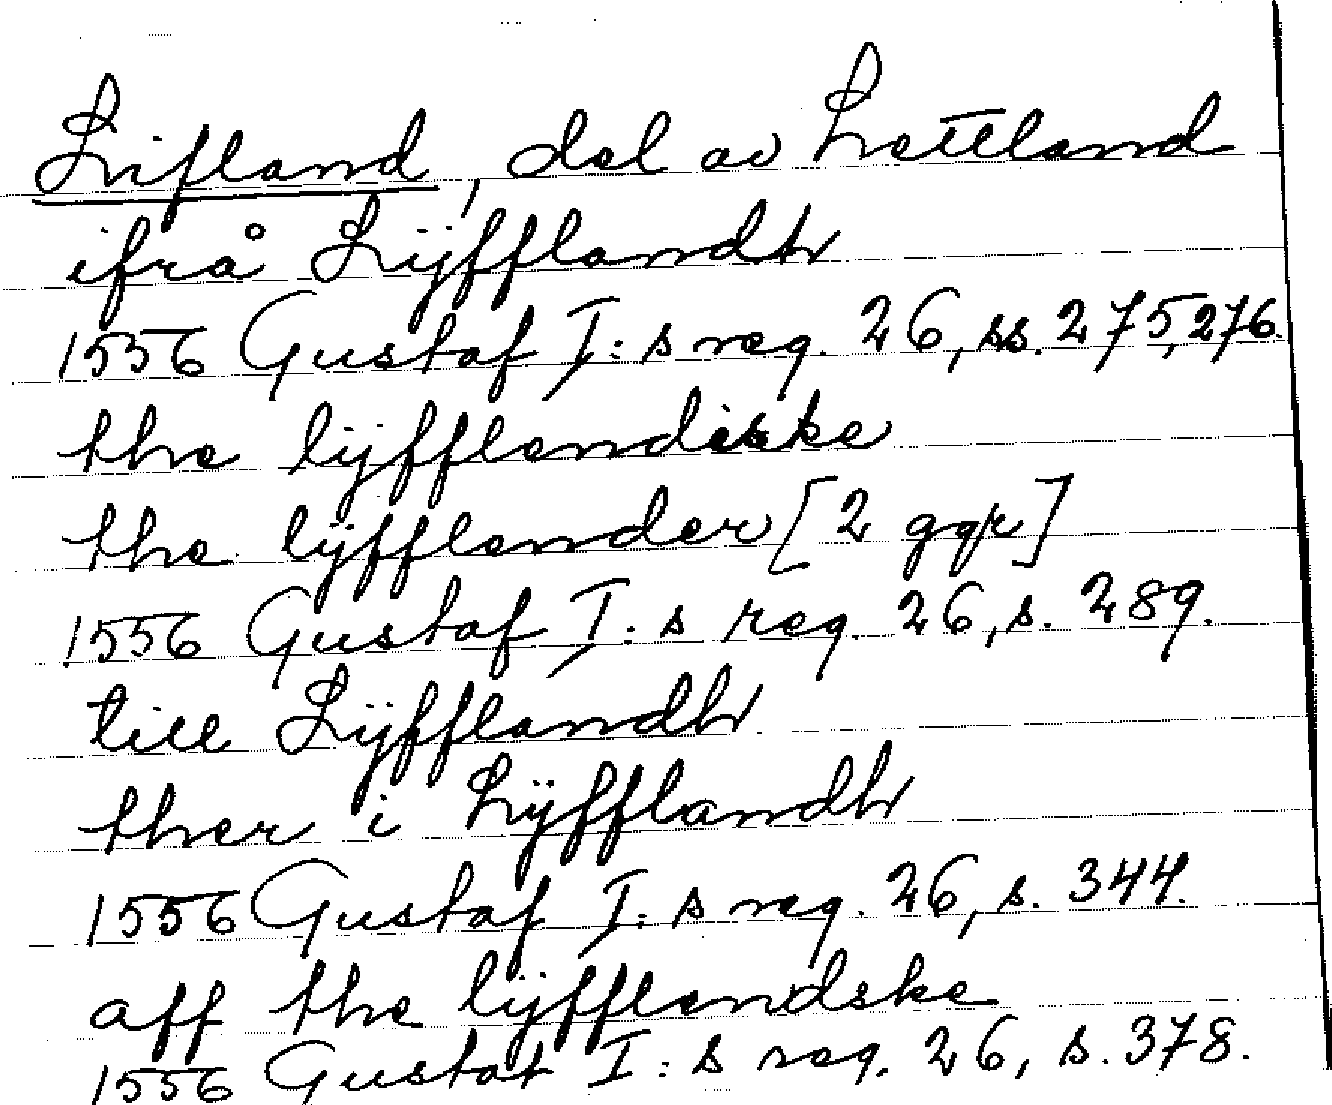 Lifland, del av Lettland
ifrå Lÿfflandh
1556 Gustaf I:s reg. 26, ss. 275, 276.
the lÿfflendiske
the lÿfflender [2 ggr]
1556 Gustaf I:s reg. 26, s. 289.
till Lÿfflandh
ther i Lÿfflandh
1556 Gustaf I:s reg. 26, s. 344.
aff the lÿfflendske
1556 Gustaf I:s reg. 26, s. 378.